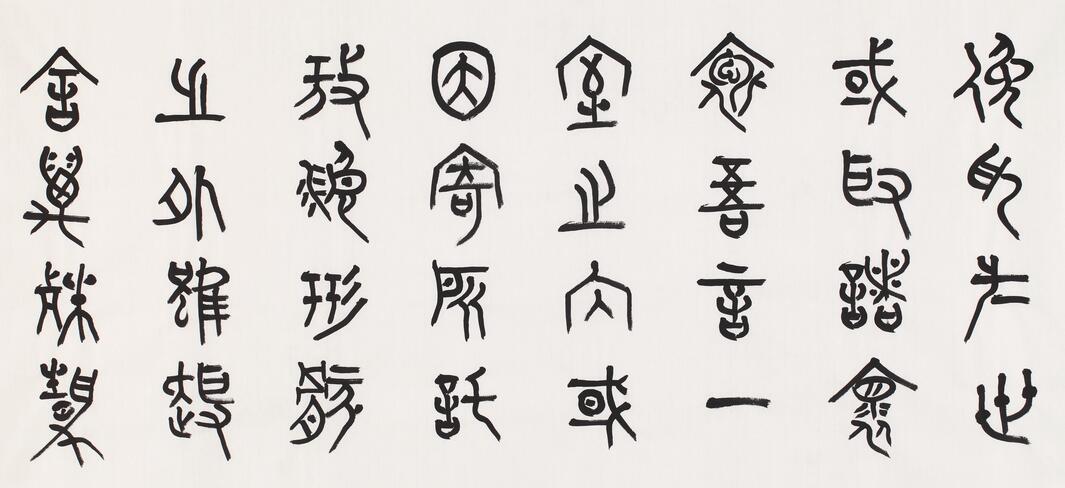 俛卬世
或取諸懷
抱吾言一
室之內或
因寄所託
放浪形骸
之外雖趣
舍萬殊靜